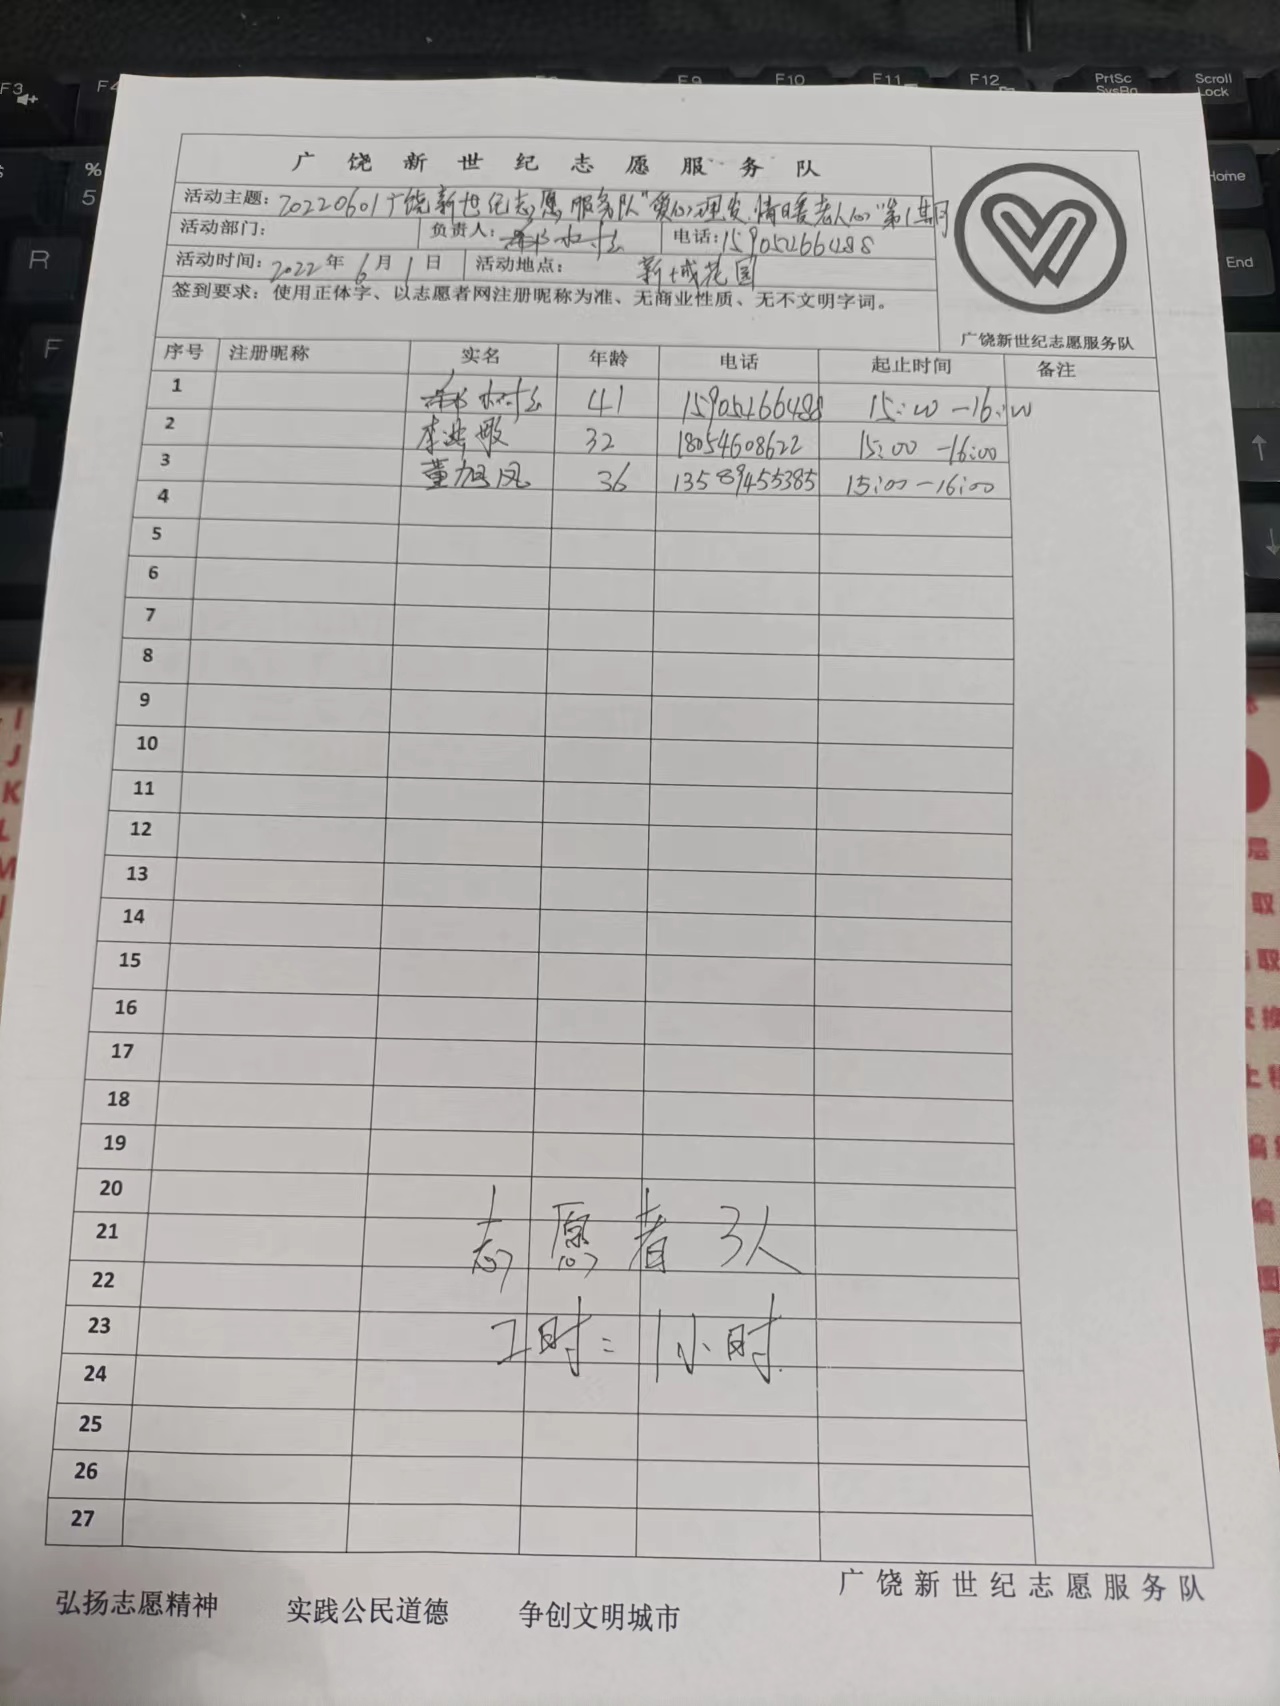 F3
F4
F9
F10
F11
F12
PrtSc
SysRq
Scroll
Lock
%
5
Home
R
End
F
广饶新世纪志愿服务队
活动主题：20220601广饶新世纪志愿服务队"爱心理发，情暖老人心"第1期
活动部门： 负责人： 电话：15905466488
活动时间：2022年6月1日 活动地点：新城花园
签到要求：使用正体字、以志愿者网注册昵称为准、无商业性质、无不文明字词。
广饶新世纪志愿服务队
序号 注册昵称 实名 年龄 电话 起止时间 备注
1 41 15905466488 15:00-16:00
2 李 敏 32 18054608622 15:00-16:00
3 董旭凤 36 13589455385 15:00-16:00
4
5
6
7
8
9
10
11
12
13
14
15
16
17
18
19
20
21 志愿者3人
22
23 工时：1小时
24
25
26
27
广饶新世纪志愿服务队
弘扬志愿精神 实践公民道德 争创文明城市
I
J
K
L
M
层
取
取
换
上
编
编
图
字